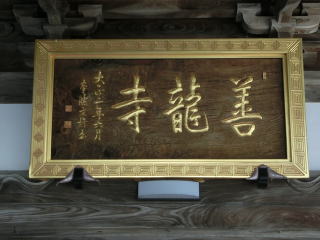 善龍寺
大正二年六月